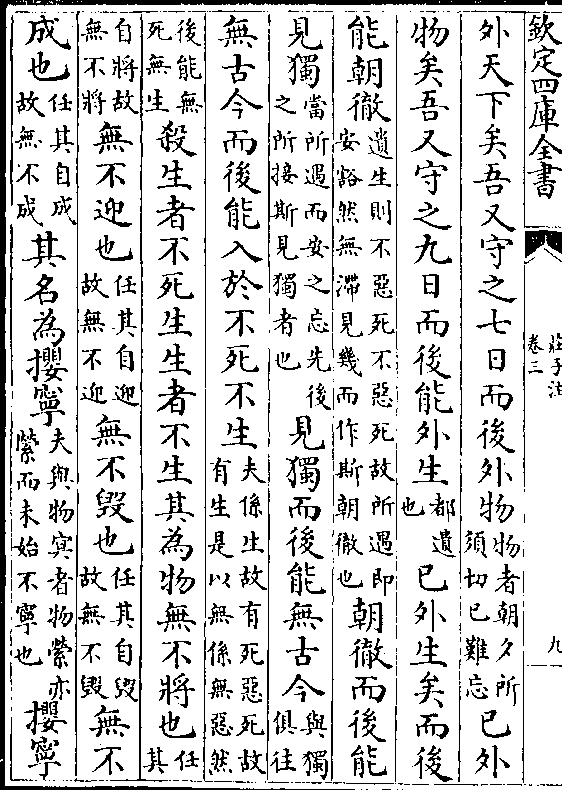 欽定四庫全書
莊子注
卷三
九
外天下矣吾又守之七日而後外物物者朝夕所須切已難忘已外
物矣吾又守之九日而後能外生都遺也已外生矣而後
能朝徹遺生則不惡死不惡死故所遇即安豁然無滯見幾而作斯朝徹也朝徹而後能
見獨當所遇而安之忘先後之所接斯見獨者也見獨而後能無古今與獨俱往
無古今而後能入於不死不生夫係生故有死惡死故有生是以無係無惡然
後能無死無生殺生者不死生生者不生其為物無不將也任其
自將故無不將無不迎也任其自迎故無不迎無不毁也任其自毁故無不毁無不
成也任其自成故無不成其名為攖寧夫與物冥者物縈亦縈而未始不寧也攖寧